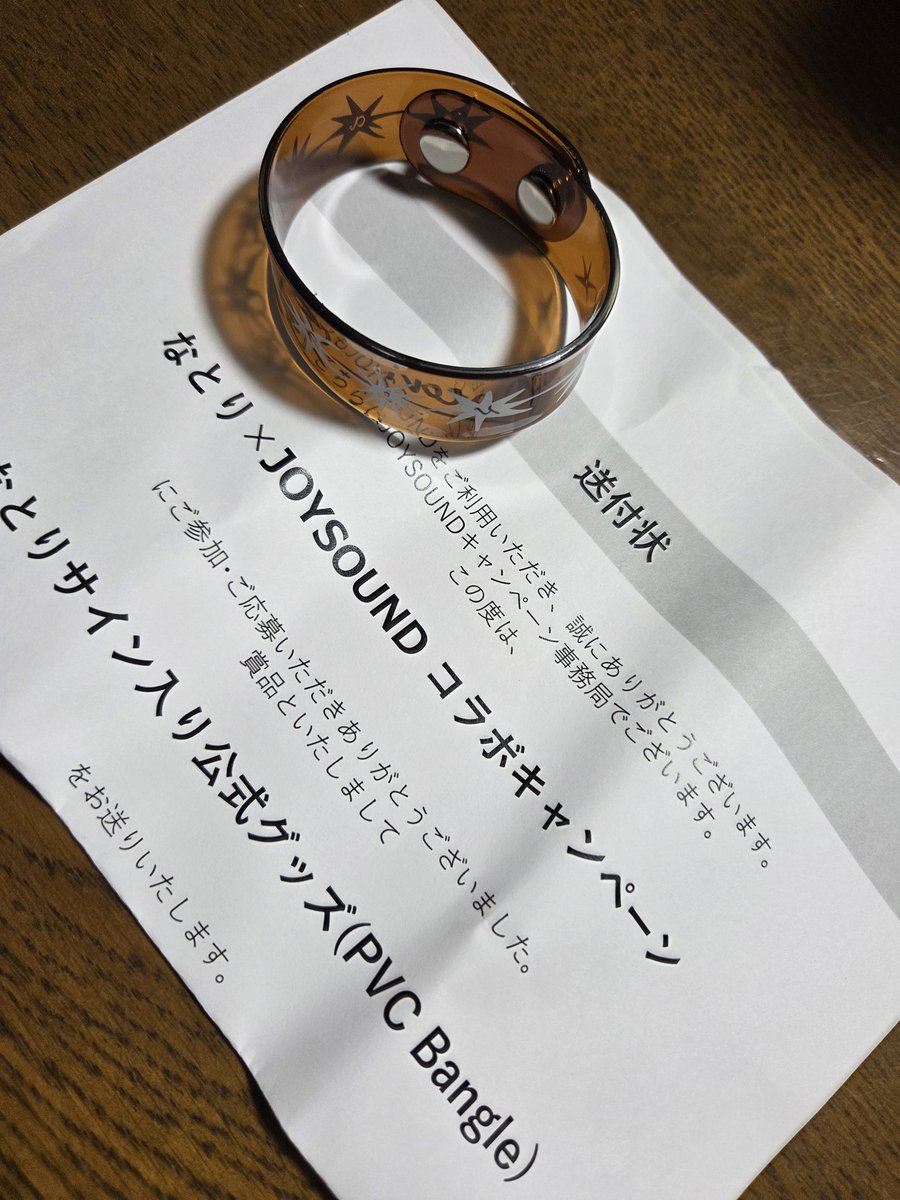 送付状
をご利用いただき、誠にありがとうございます。
JOYSOUNDキャンペーン事務局でございます。
この度は、
なとり×JOYSOUND コラボキャンペーン
にご参加・ご応募いただきありがとうございました。
賞品といたしまして
なとりサイン入り公式グッズ(PVC Bangle)
をお送りいたします。